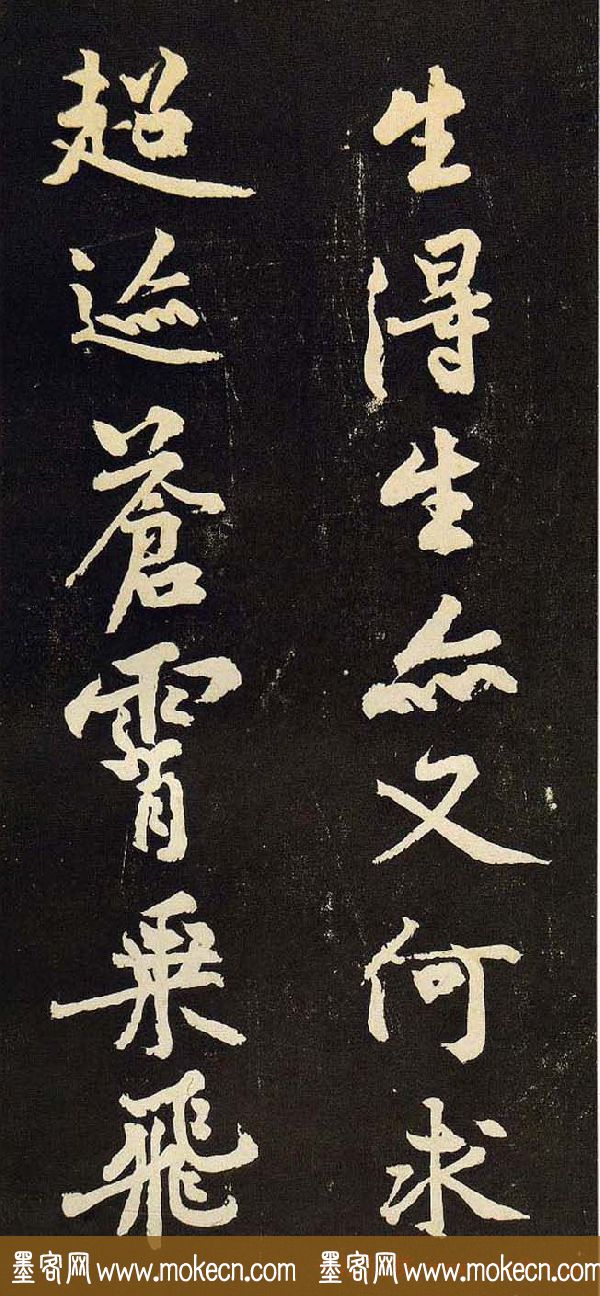 生得生亦又何求
超迹蒼霄乘飛
墨客网 www.mokecn.com 墨客网 www.mokecn.com